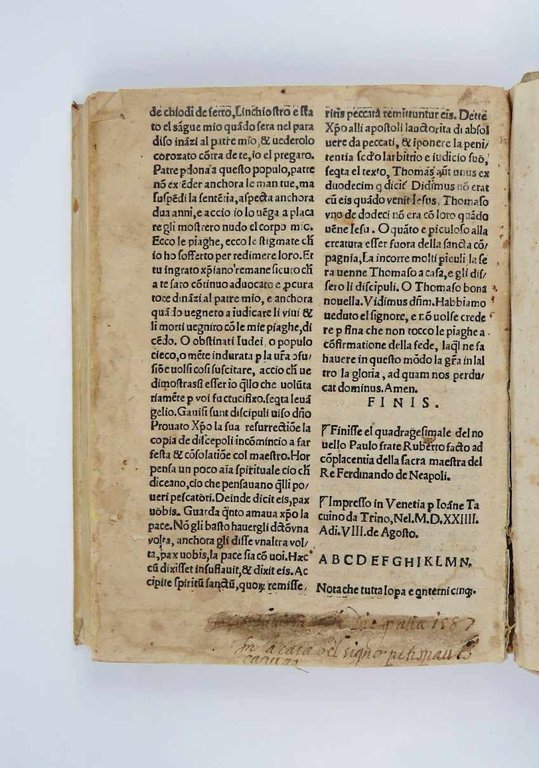 de chiodi de ferro, Linchiostro e sta
to el sãgue mio quãdo sera nel para
diso inãzi al patre mio, & uederolo
corozato cõtra de te, io el pregaro.
Patre pdona a questo populo, patre
nõ exƐder anchora le man tue, ma
suspẽdi la sentẽtia, aspecta anchora
dua anni, e accio io lo uẽga a placa
re gli mostrero nudo el corpo mio.
Ecco le piaghe, ecco le stigmate ch̃
io ho sofferto per redimere loro. Et
tu ingrato xp̃iano remane sicuro ch̃
a te saro cõtinuo aduocato e pcura
tore dinãzi al patre mio, e anchora
quãdo uegnero a iudicare li uiui &
li morti uegniro cõ le mie piaghe, di
cẽdo. O obstinati Iudei, o populo
cieco, o mẽte indurata p la ur̃a ꝯfu
siõe uolsi cosi suscitare, accio ch̃ ue
dimostrassi esser io q̃llo che uolũta
riamẽte p uoi fu ctucifixo. seq̃ta leuã
gelio. Gauisi sunt discipuli uiso dño
Prouato Xp̃o la sua resurrectiõe la
copia de discepoli incomincio a far
festa & cõsolatiõe col maestro. Hor
pensa un poco aĩa spirituale cio ch̃
diceano, cio che pensauano q̃lli po
ueri pescatori. Deinde dicit eis, pax
uobis. Guarda q̃nto amaua xp̃o la
pace. Nõ gli basto hauergli dcto una
volta, anchora gli disse vnaltra vol
ta, pax uobis, la pace sia cõ uoi. Hæc
cũ dixisset insufflauit, & dixit eis. Ac
cipite spiritũ sanctũ, quoꝝ remisse
ritis peccata remittuntur eis. Dette
Xp̃o alli apostoli lauctorita di absol
uere da peccati, & iponere la peni
tentia scd̃o larbitrio e iudicio suo,
seq̃ta el texto, Thomas aũt unus ex
duodecim q̃ dicit̃ Didimus nõ erat
cũ eis quãdo venit Iesus. Thomaso
vno de dodeci nõ era cõ loro quãdo
uẽne Iesu. O quãto e piculoso alla
creatura esser fuora della sancta cõ
pagnia, La incorre molti piculi la se
ra uenne Thomaso a casa, e gli dis
sero li discipuli. O Thomaso bona
nouella. Vidimus dñm. Habbiamo
ueduto el signore, e nõ uolse crede
re p fina che non tocco le piaghe a
cõfirmatione della fede, laq̃l ne fa
hauere in questo mõdo la gr̃a in lal
tro la gloria, ad quam nos perdu
cat dominus. Amen.
F I N I S.
Finisse el quadragesimale del no
uello Paulo frate Ruberto facto ad
cõplacentia della sacra maiesta del
Re Ferdinando de Neapoli.
Impresso in Venetia p Ioãne Ta
cuino da Trino, Nel. M.D.XXIIII.
Adi. VIII. de Agosto.
A B C D E F G H I K L M N.
Nota che tutta lopa e q̃nterni cinq̃.
1587
In la casa del signor